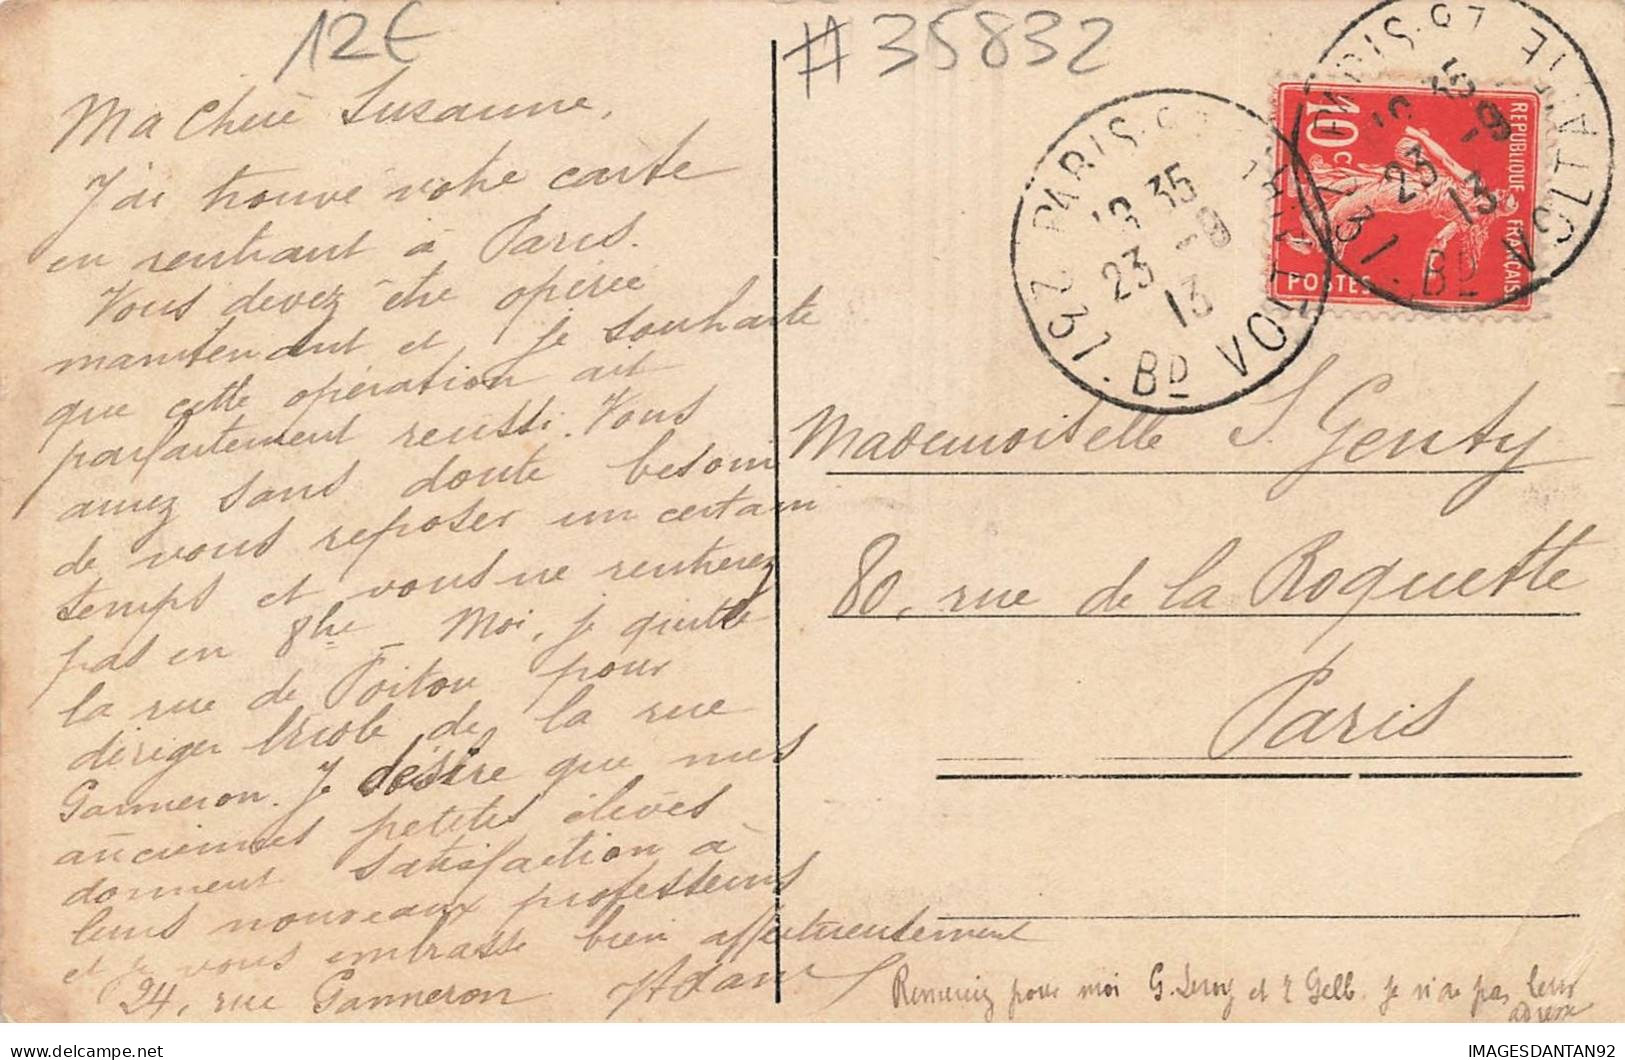 12€
# 35832
Ma Chère Susanne,
J'ai trouvé votre carte
en rentrant à Paris.
Vous devez être opérée
maintenant et je souhaite
que cette opération ait
parfaitement réussi. Vous
aurez sans doute besoin
de vous reposer un certain
temps et vous ne rentrerez
pas en 8bre _ Moi, je quitte
la rue de Poitou pour
diriger l'école de la rue
Ganneron. Je désire que mes
anciennes petites élèves
donnent satisfaction à
leurs nouveaux professeurs
et je vous embrasse bien affectueusement
24, rue Ganneron
HAdam
PARIS-97
18 35
23 -9
13
137 · BD VOLTAIRE
PARIS-97
18 35
23 -9
13
137 · BD VOLTAIRE
REPUBLIQUE FRANÇAISE
10 c
POSTES
Mademoiselle S. Genty
80, rue de la Roquette
Paris
Remerciez pour moi G. Leroy et Gelb. Je n'ai pas leur
adresse
IMAGESDANTAN92